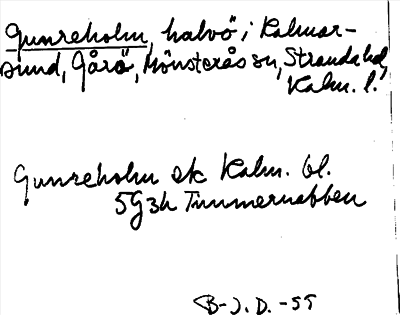 Gunreholm, halvö i Kalmar-
sund, Gårö, Mönsterås sn, Stranda hd,
Kalm. l.
Gunreholm ek Kalm. bl.
5G3h Timmernabben
B-J.D. -55